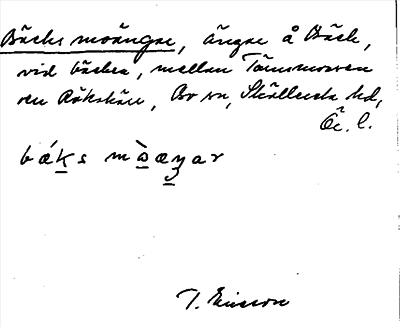 Bäcks moängar, ängar å Bäck,
vid bäcken, mellan Tärnsmossen
och Rökskäre, Bo sn, Skällersta hd,
Ör. l.
bǽks mɔ̀æŋar
T. Ericsson